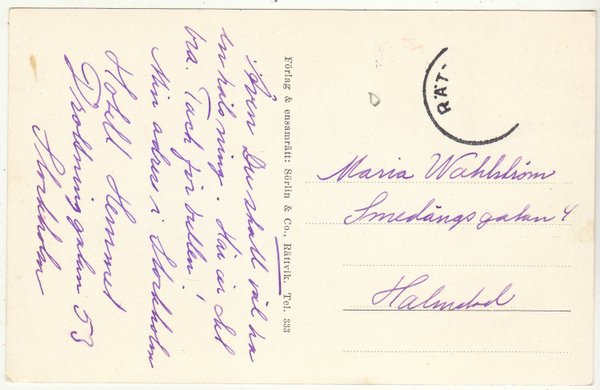 Även Du skall väl ha
en hälsning. Här är det
bra. Tack för
Min adress i Stockholm
Hotell Hemmet
Drottninggatan 53
Stockholm
Förlag & ensamrätt: Sörlin & Co., Rättvik. Tel. 333
RÄT
Maria Wahlström
Smedångsgatan 4
Halmstad